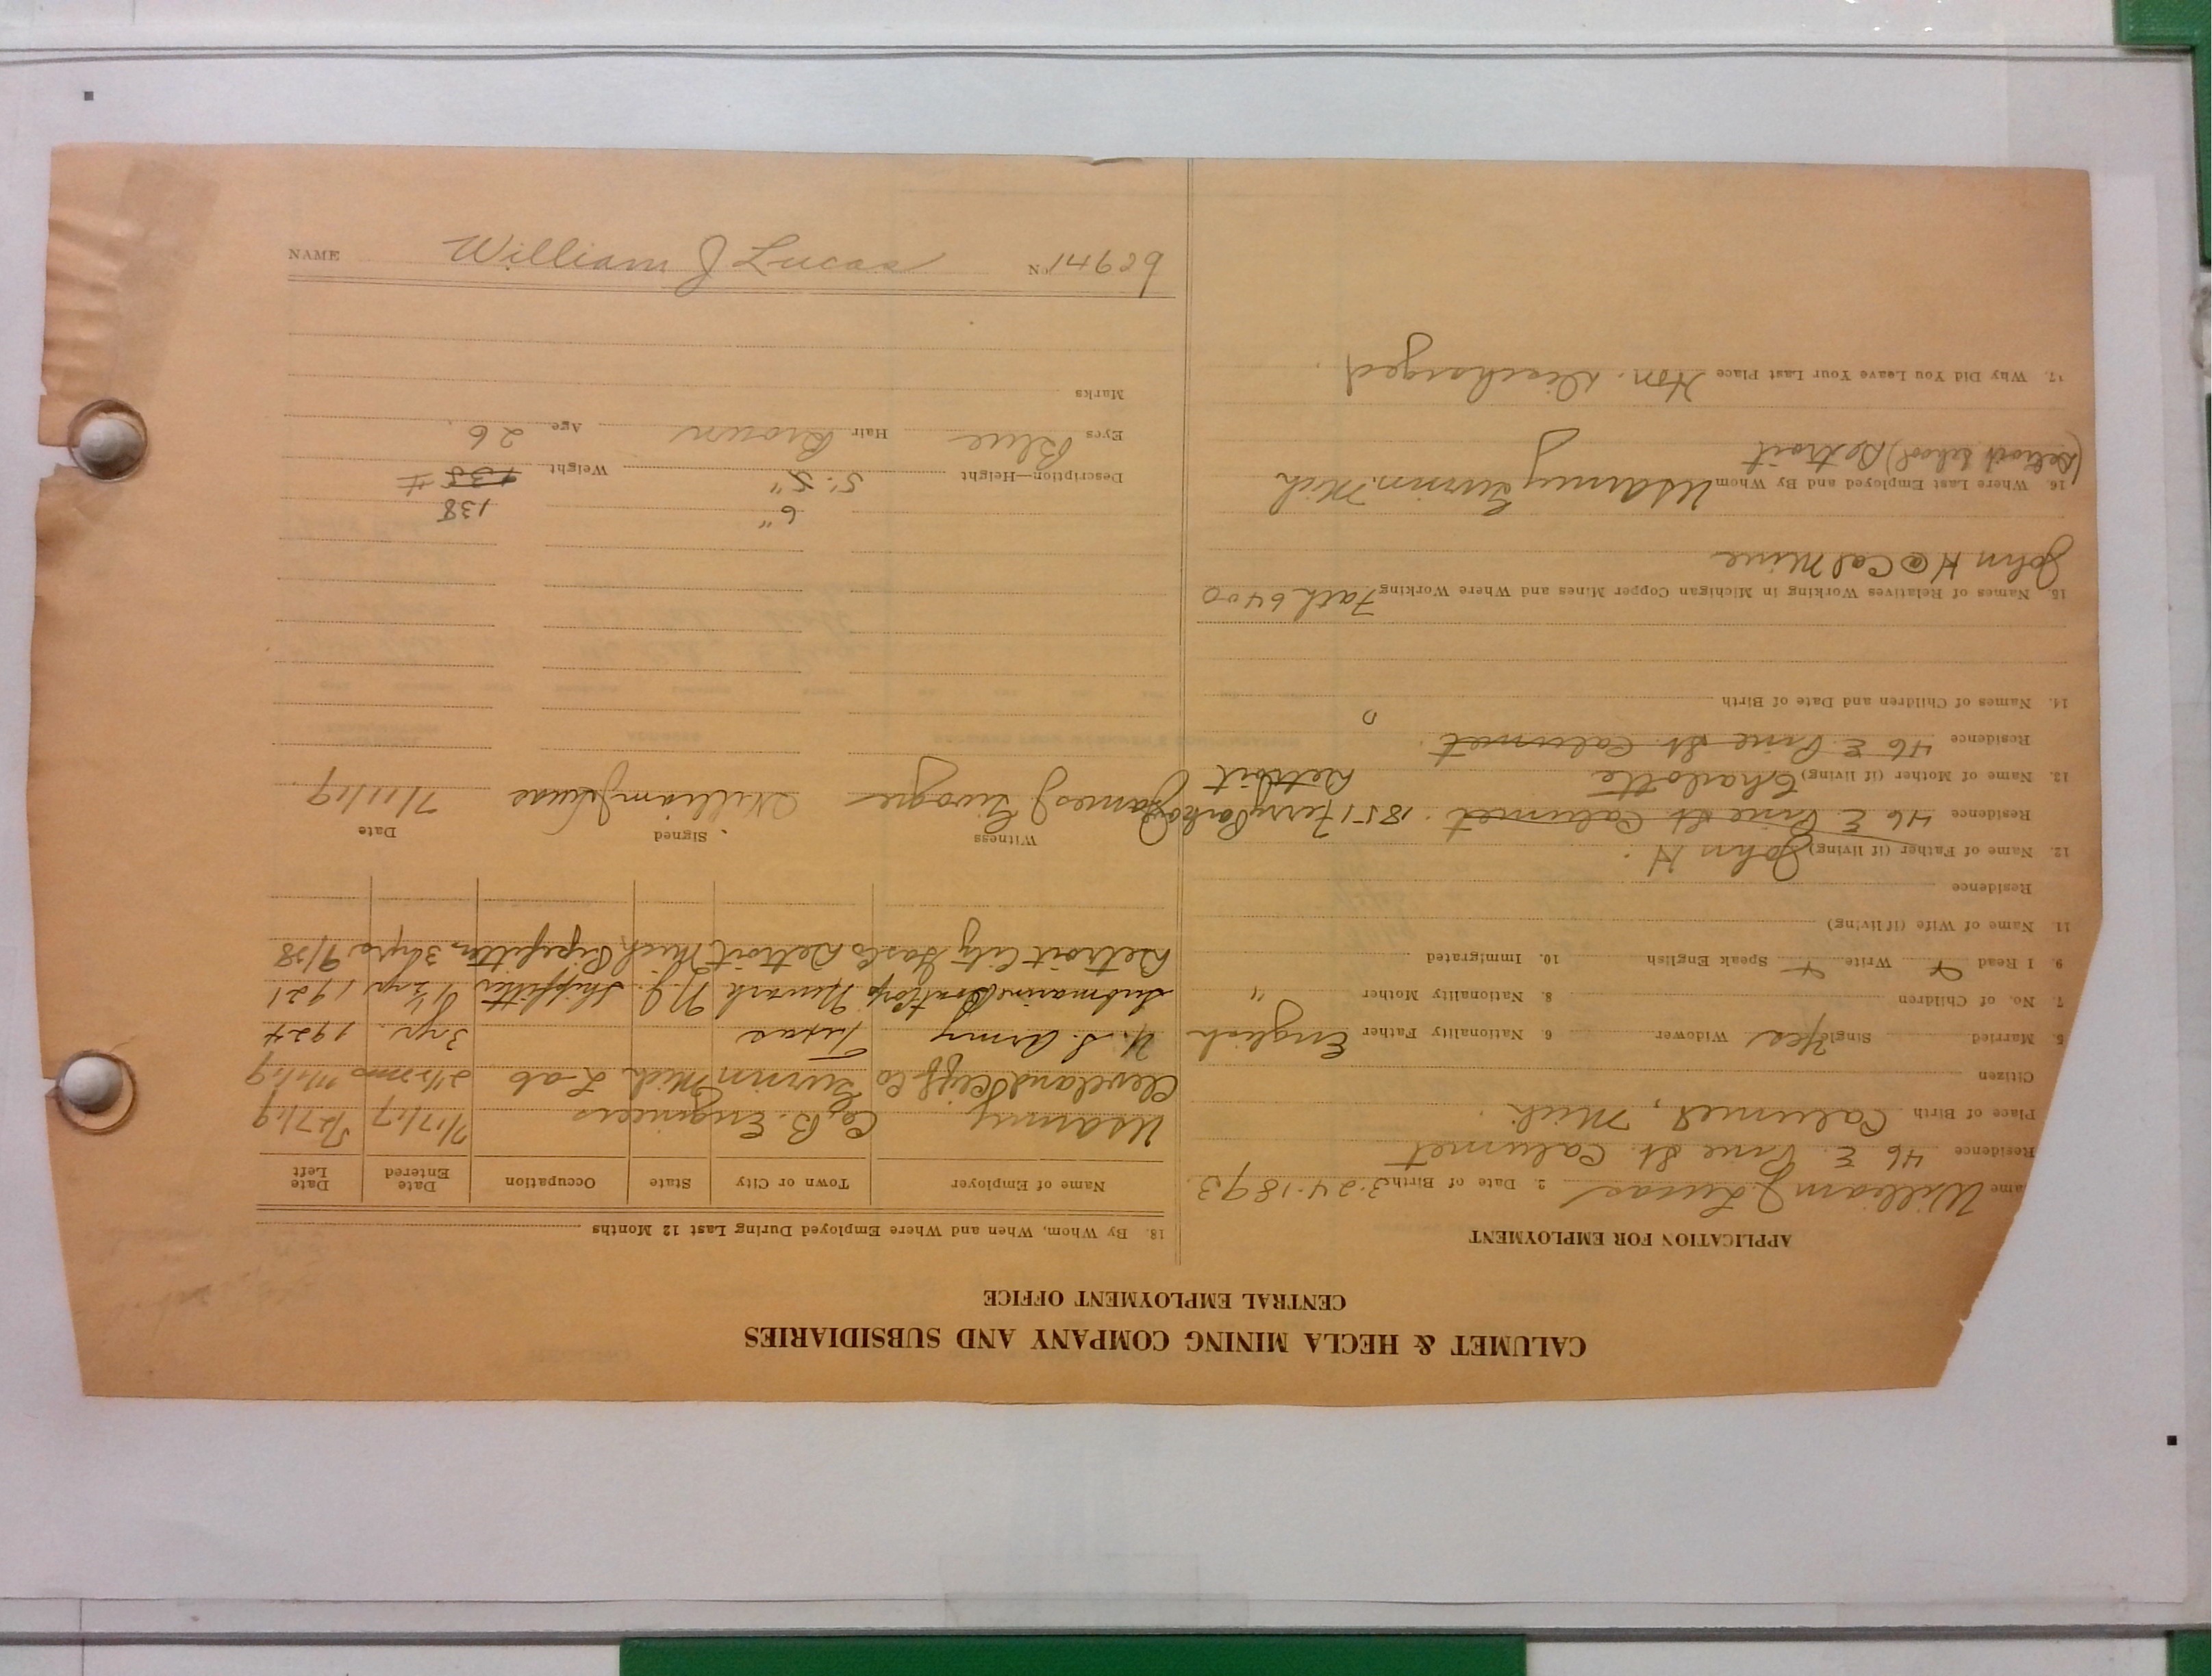 CALUMET & HECLA MINING COMPANY AND SUBSIDIARIES
CENTRAL EMPLOYMENT OFFICE
APPLICATION FOR EMPLOYMENT
ame William J Lucas 2. Date of Birth 3.24.1893
Residence 46 E. Pine St. Calumet
Place of Birth Calumet, Mich.
Citizen
5. Married Single Yes Widower 6. Nationality Father English
7. No. of Children 8. Nationality Mother "
9. I Read Write Speak English 10. Immigrated
11. Name of Wife (if living)
Residence
12. Name of Father (if living) John H.
Residence 46 E. Pine St. Calumet. 1851 Ferry Park
13. Name of Mother (if living) Charlotte Detroit
Residence 46 E Pine St. Calumet.
14. Names of Children and Date of Birth
15. Names of Relatives Working in Michigan Copper Mines and Where Working Fath 6400
John H @ Cal Mine
16. Where Last Employed and By Whom US Army Gwinn. Mich
(Detroit School) Detroit
17. Why Did You Leave Your Last Place Hon. Discharged.
18. By Whom, When and Where Employed During Last 12 Months
Name of Employer Town or City State Occupation Date Entered Date Left
US Army Co B. Engineers 7/17/17 /27/19
Cleveland Cliff Co Gwinn Mich Lab 2 1/2 mos 7/1/19
U. S. Army Texas 3 yr. 1924
Submarine Boat Corp Newark N.J. Shipfitter 1 1/2 yr 1921
Detroit City Gas Co Detroit Mich Pipefitter 3 1/2 yrs 9/28
Witness Signed Date
James J William J Lucas 7/11/19
6" 138
Description—Height 5'. 5" Weight 135 #
Eyes Blue Hair Brown Age 26
Marks
NAME William J Lucas No. 14629